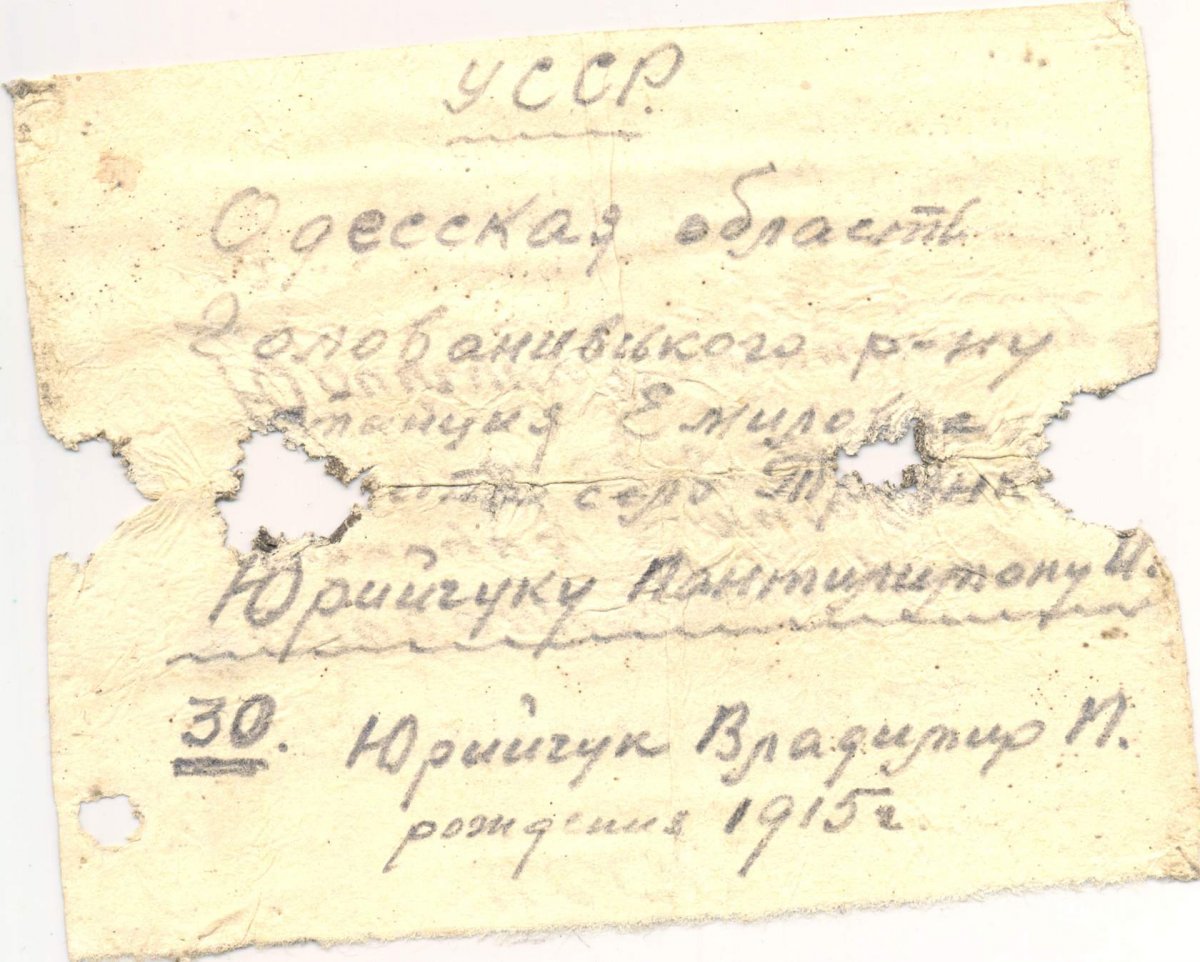 УССР.
Одесская область
Голованивського р-ну
станция Емиловка
село
Юрийчуку Пантилимону И.
30. Юрийчук Владимир П.
рождения 1915г